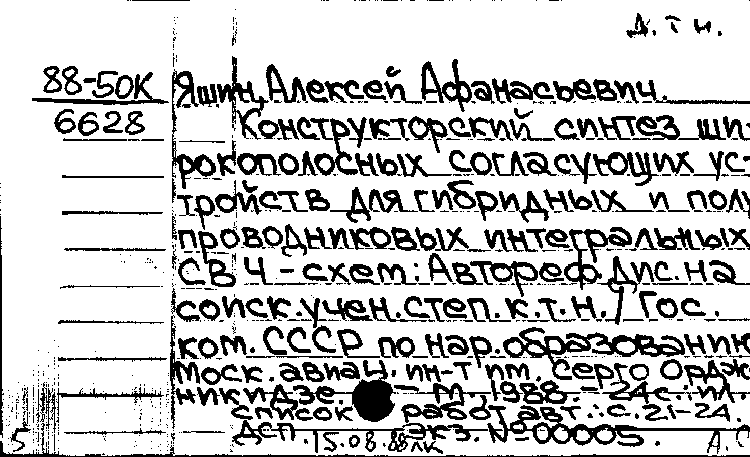 Д.Т Н.
88-50К
6628
Яшин, Алексей Афанасьевич.
Конструкторский синтез ши-
рокополосных согласующих ус-
тройств для гибридных и полу
проводниковых интегральных
СВЧ-схем: Автореф.дис.на
соиск.учен.степ.к.т.н./ Гос.
ком. СССР по нар.образованию
Моск. авиац. ин-т им. Серго Ордж
никидзе. – М., 1988. – 24с.: ил.
список работ авт.: с. 21-24.
ДСП. экз. №00005.
15.08.88
5
А. С